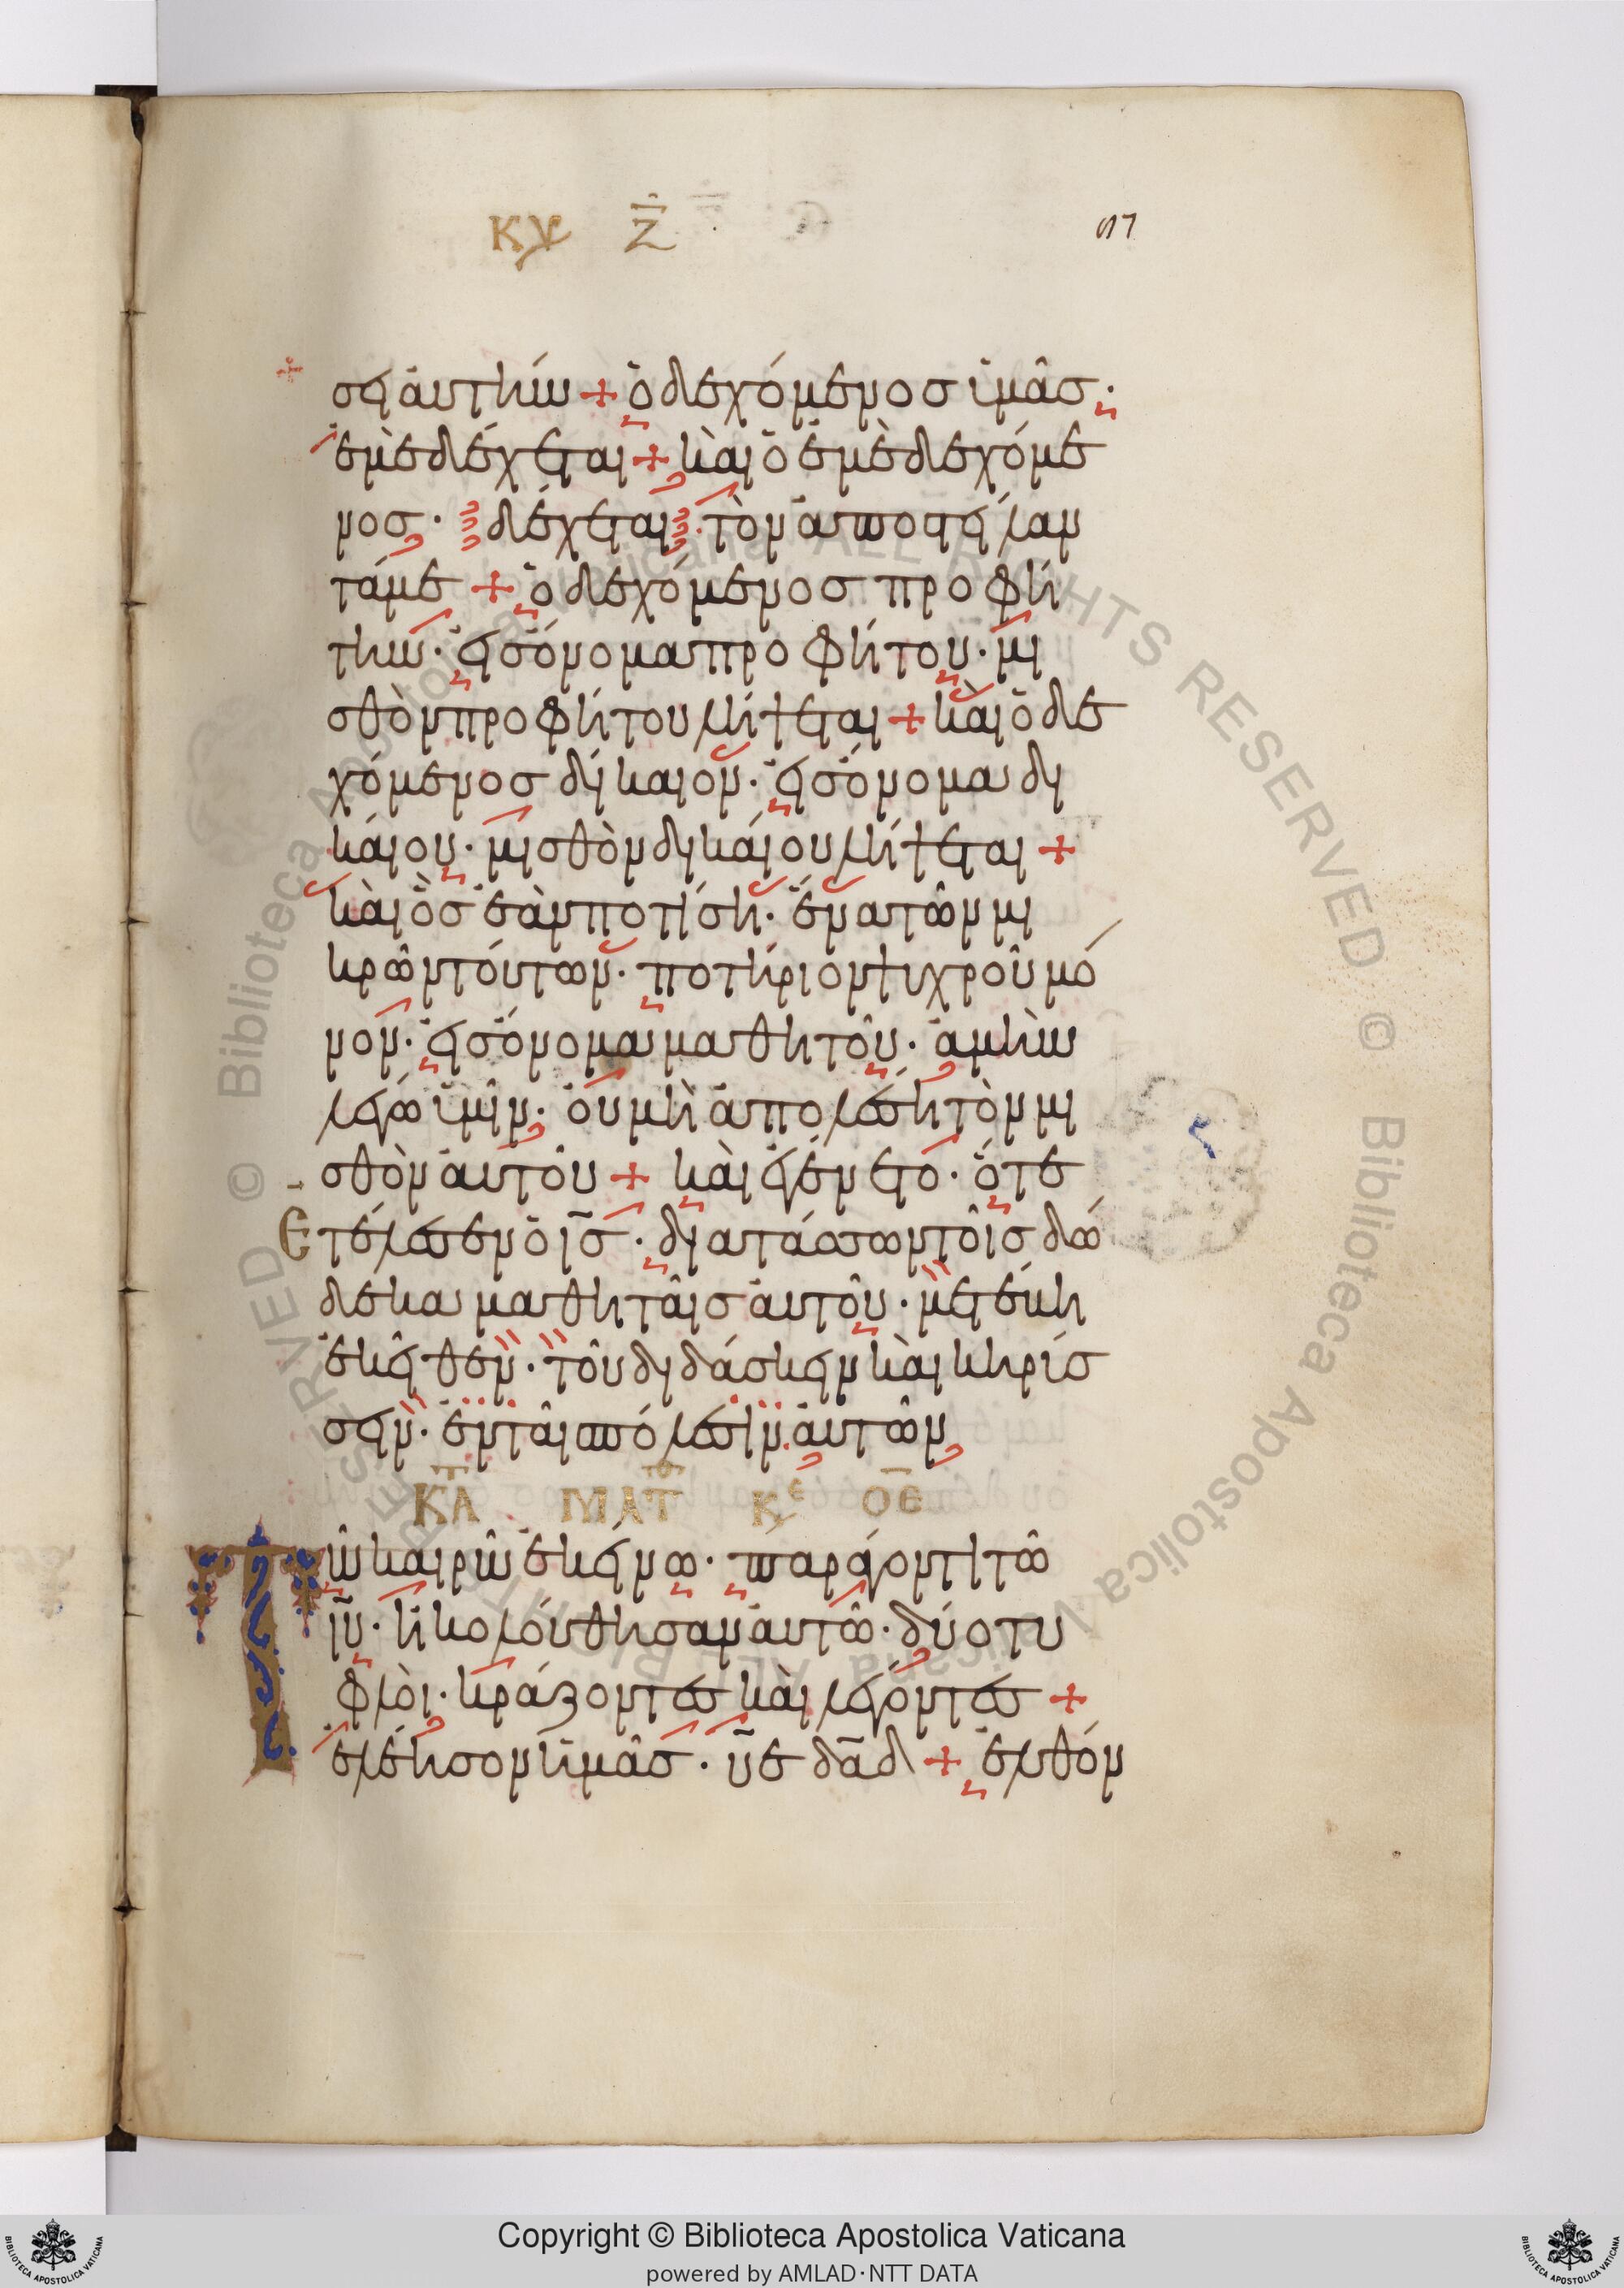 ΚΥ Ζ̄
57
σει ἀυτὴν + ὁ δεχόμενος ὑμᾶς·
ἐμὲ δέχεται + καὶ ὁ ἐμὲ δεχόμε
νος· δέχεται τὸν ἀποστείλαν
τά με + ὁ δεχόμενος προφή
την· εἰς ὄνομα προφήτου· μι
σθὸν προφήτου λήψεται + καὶ ὁ δε
χόμενος δίκαιον· εἰς ὄνομα δι
καίου· μισθὸν δικαίου λήψεται +
καὶ ὃς ἐὰν ποτίσῃ· ἕνα τῶν μι
κρῶν τούτων· ποτήριον ψυχροῦ μό
νον· εἰς ὄνομα μαθητοῦ· ἀμὴν
λέγω ὑμῖν· οὐ μὴ ἀπολέσῃ τὸν μι
σθὸν ἀυτοῦ + καὶ ἐγένετο· ὅτε
ἐτέλεσεν ὁ ι̅ς̅· διατάσσων τοῖς δώ
δεκα μαθηταῖς ἀυτοῦ· μετέβη
ἐκεῖθεν· τοῦ διδάσκειν καὶ κηρύσ
σειν· ἐν ταῖς πόλεσιν ἀυτῶν
ΚΑ̅ ΜΑΤ̅ Κε ΟΕ̅
Τῶ καιρῶ ἐκείνω· παράγοντι τῶ
ι̅υ̅· ἠκολούθησαν ἀυτῶ· δύο τυ
φλοὶ· κράζοντες καὶ λέγοντες +
ἐλέησον ἡμᾶς· υ̅ε̅ δ̅α̅δ̅ + ἐλθόν
Copyright © Biblioteca Apostolica Vaticana
powered by AMLAD·NTT DATA